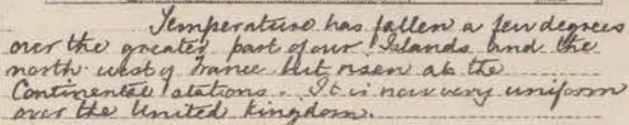 Temperature has fallen a few degrees
over the greater part of our Islands and the
north west of France but risen at the
Continental stations. It is now very uniform
over the United Kingdom.